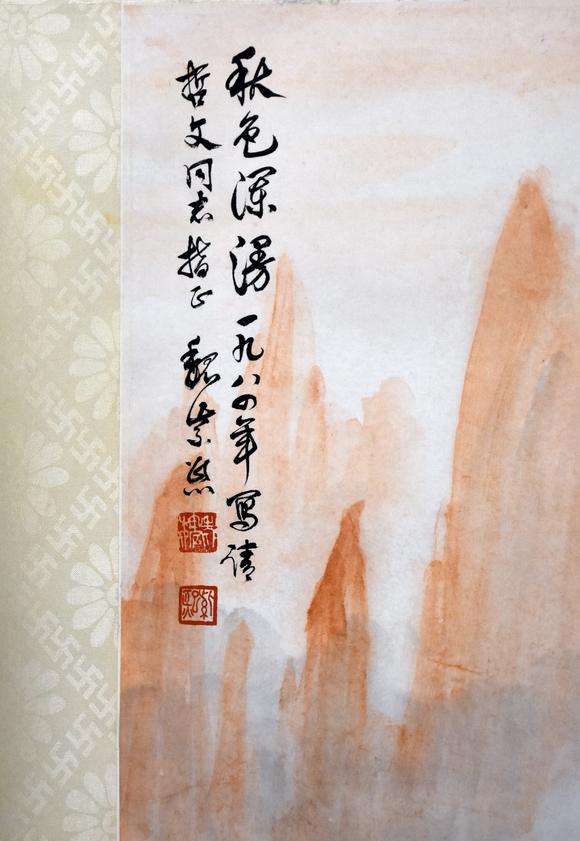 秋色深浔一九八四年写请
哲文同志指正 魏紫熙